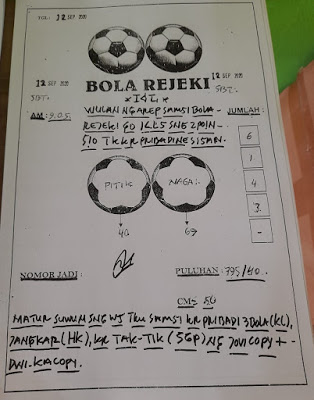 TGL: 12 SEP 2020
12 SEP 2020 12 SEP 2020
SBT. SBT.
BOLA REJEKI
WULAN NGAREP SAMSI BOLA - JUMLAH :
AM : 9.0.5.
REJEKI GO
SIO TKKR PRIBADINE SISAN.
6
1
4
3
-
PITIK NAGA.
40 69
NOMOR JADI : PULUHAN : 795/40.
CM = 86
MATUR SUWUN SNG WS TKU SAMSI KR PRIBADI 3BOLA (KL),
JANGKAR (HK), KR TAK-TIK (SGP) NG JOVI COPY +-
DWI. KA COPY.